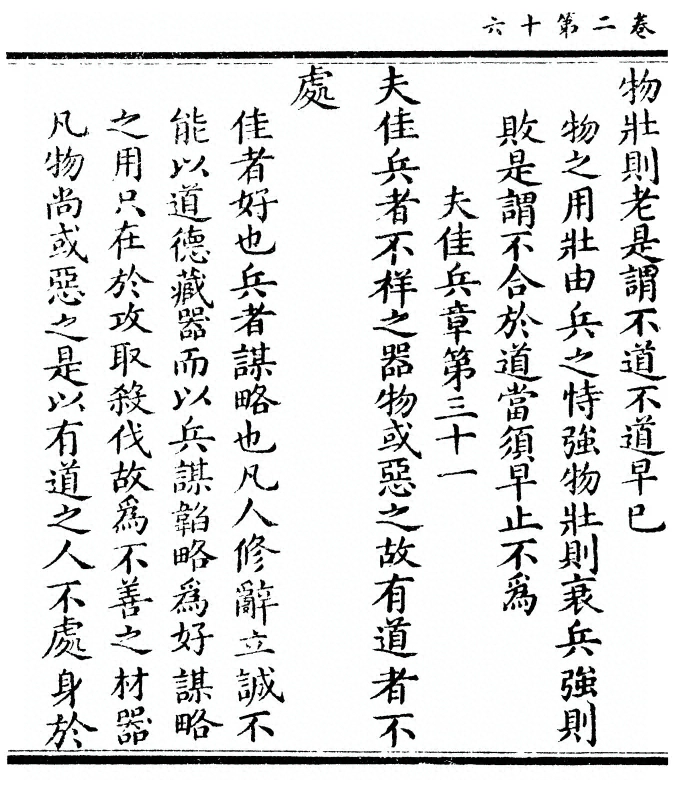 卷二第十六
物壯則老是謂不道不道早已
物之用壯由兵之恃強物壯則衰兵強則
敗是謂不合於道當須早止不爲
夫佳兵章第三十一
夫佳兵者不祥之器物或惡之故有道者不
處
佳者好也兵者謀略也凡人修辭立誠不
能以道德藏器而以兵謀韜略爲好謀略
之用只在於攻取殺伐故爲不善之材器
凡物尚或惡之是以有道之人不處身於